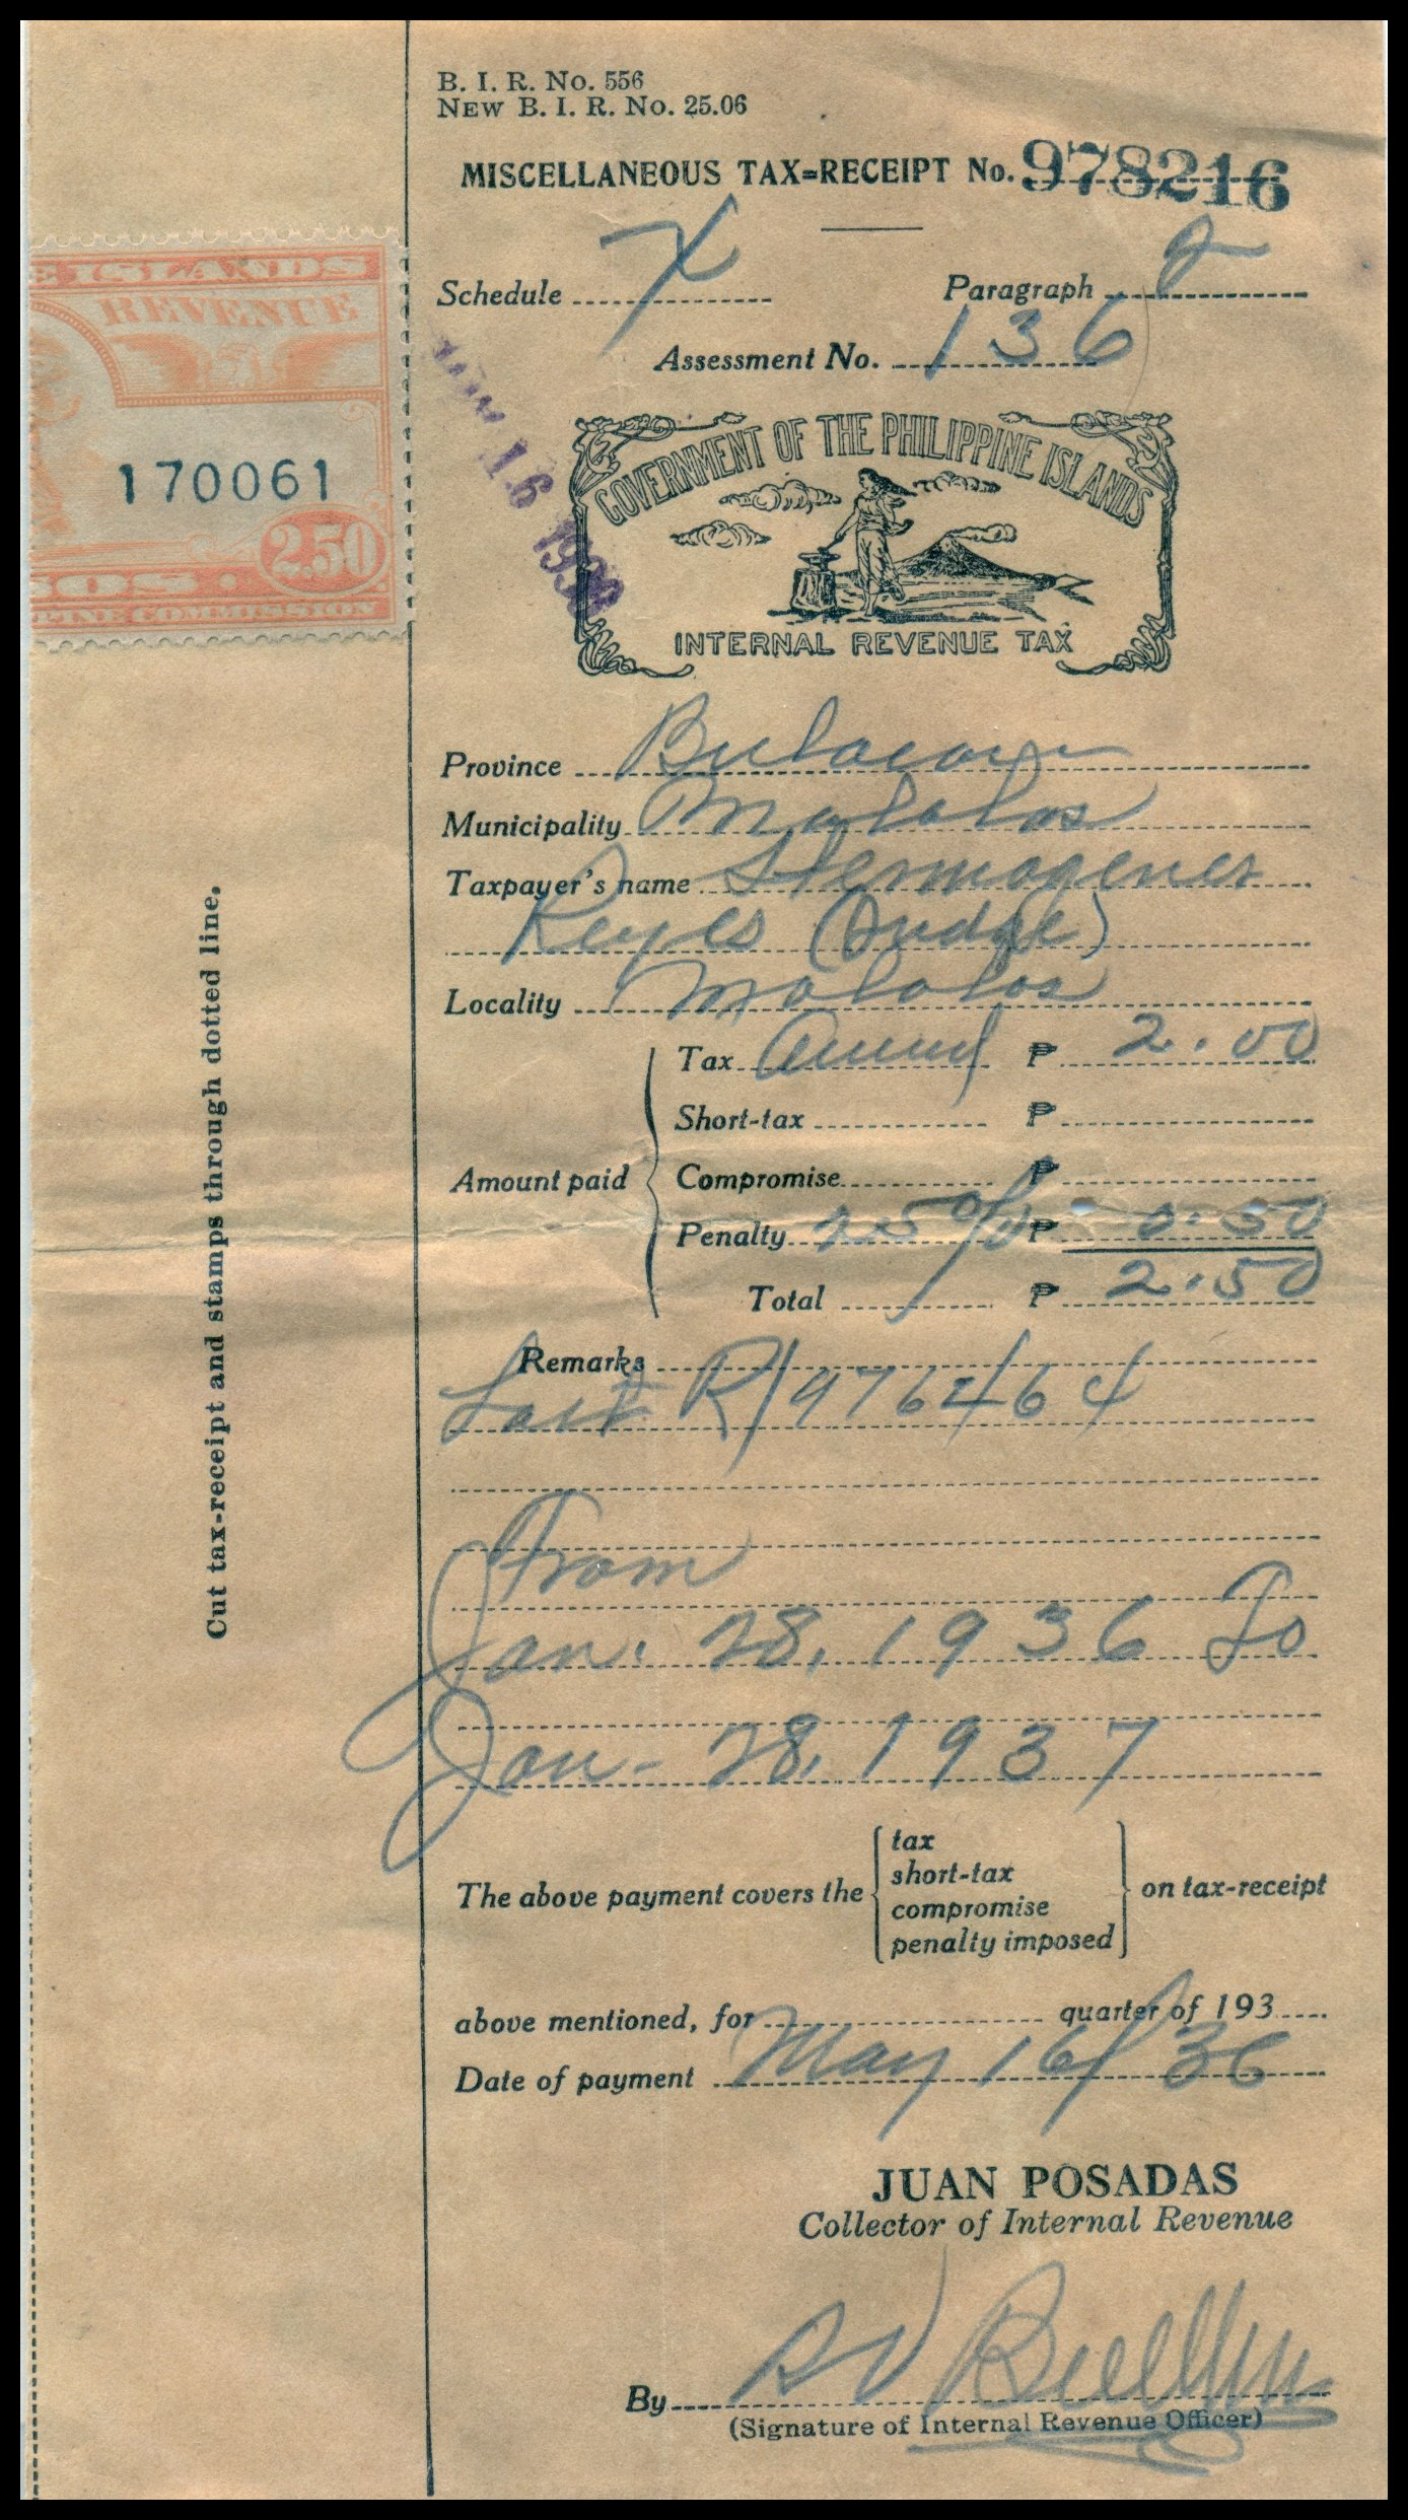 B. I. R. No. 556
NEW B. I. R. No. 25.06
MISCELLANEOUS TAX=RECEIPT No. 978216
Schedule X Paragraph 2
Assessment No. 136
E ISLANDS
REVENUE
170061
2.50
SOS.
PINE COMMISSION
16 1936
GOVERNMENT OF THE PHILIPPINE ISLANDS
INTERNAL REVENUE TAX
Province Bulacan
Municipality Malolos
Taxpayer's name Hermogenes
Reyes (Judge)
Locality Malolos
Tax Annual ₱ 2.00
Short-tax ₱
Amount paid
Compromise ₱
Penalty 25% ₱ 0.50
Total ₱ 2.50
Remarks
Last R/976464
From
Jan. 28, 1936 To
Jan- 28, 1937
The above payment covers the
tax
short-tax
compromise
penalty imposed
on tax-receipt
above mentioned, for quarter of 193
Date of payment May 16/36
JUAN POSADAS
Collector of Internal Revenue
By
(Signature of Internal Revenue Officer)
Cut tax-receipt and stamps through dotted line.